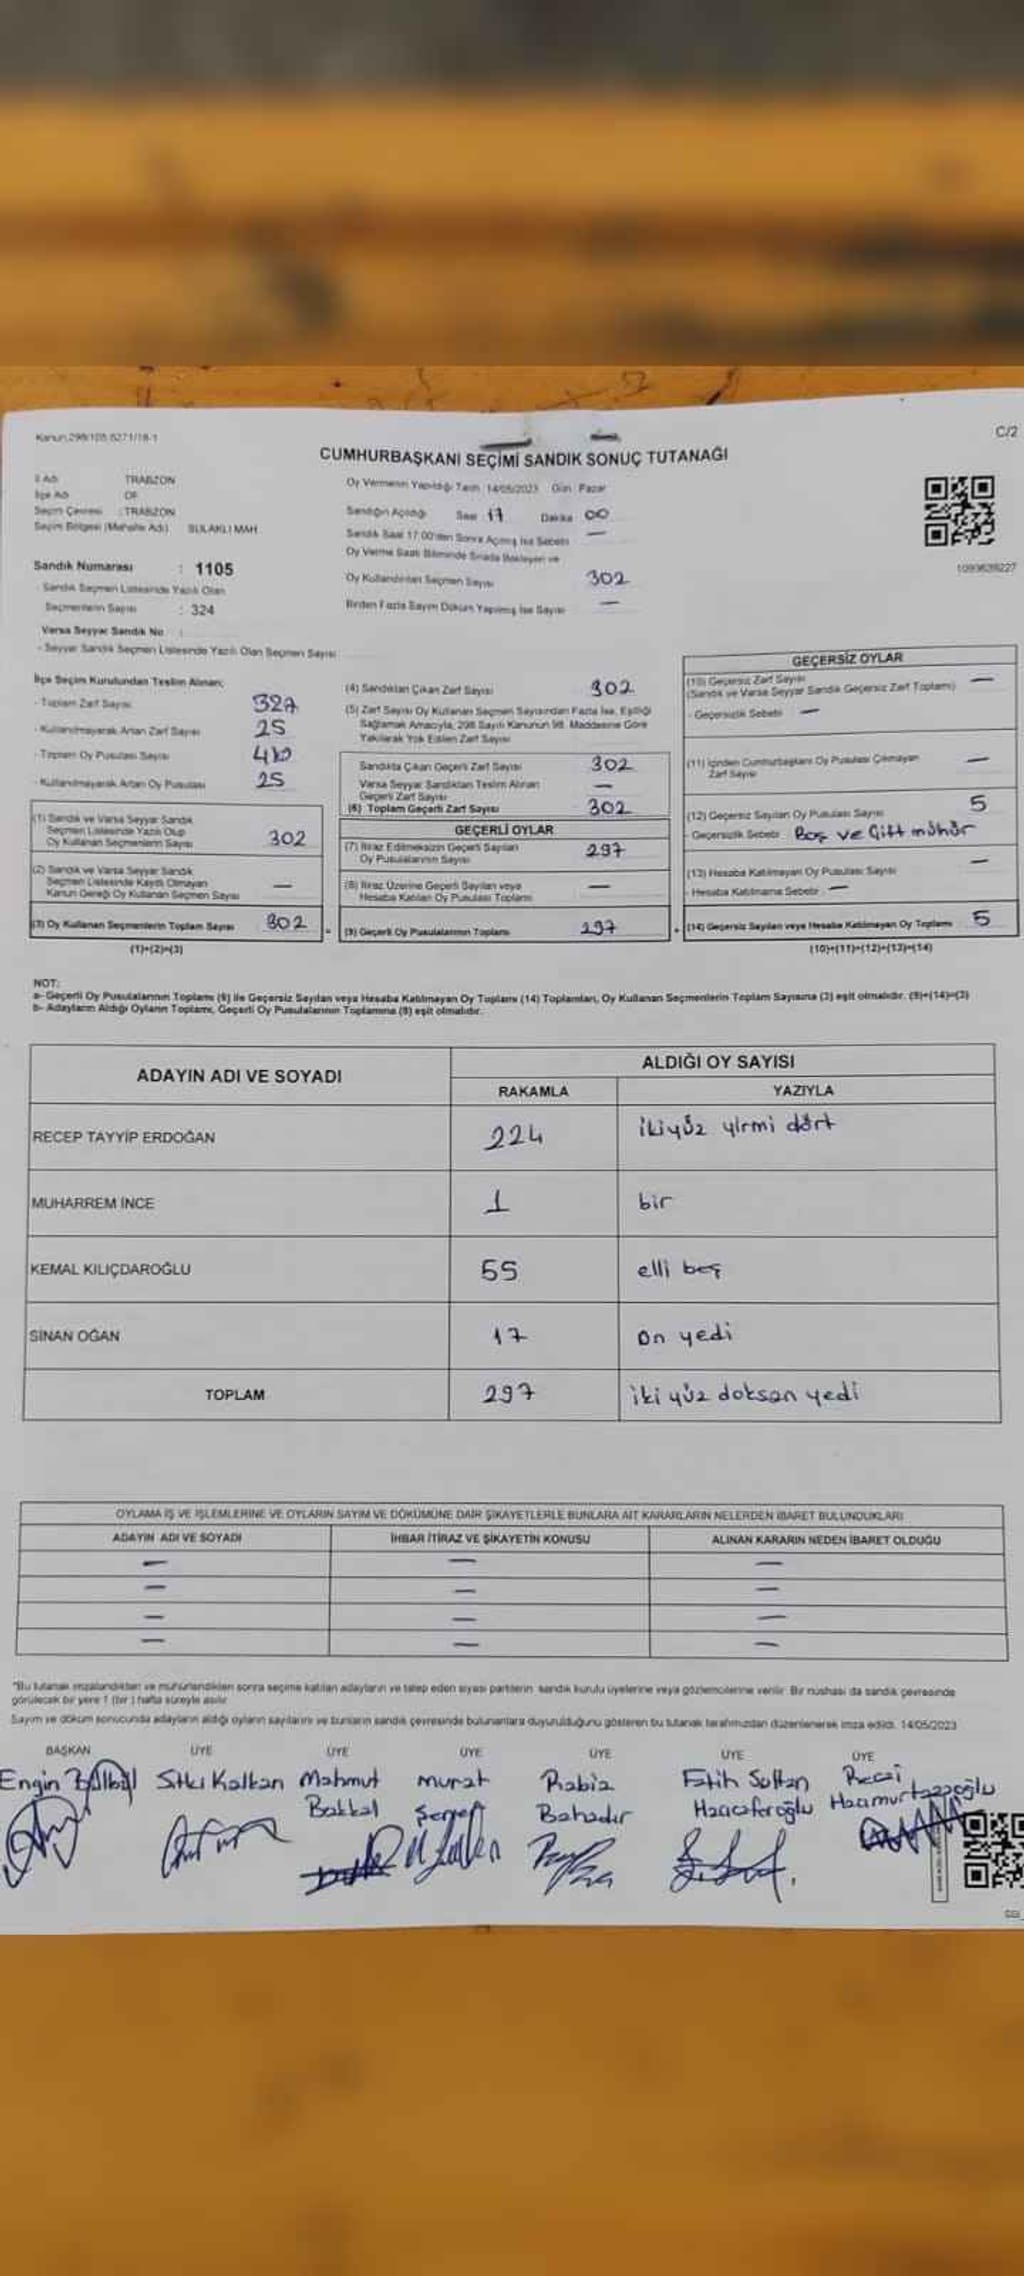 Kanun 298/105 6271/18-1
C/2
CUMHURBAŞKANI SEÇİMİ SANDIK SONUÇ TUTANAĞI
İl Adı TRABZON
İlçe Adı OF
Seçim Çevresi : TRABZON
Seçim Bölgesi (Mahalle Adı) SULAKLI MAH
Sandık Numarası : 1105
- Sandık Seçmen Listesinde Yazılı Olan
Seçmenlerin Sayısı : 324
Varsa Seyyar Sandık No :
- Seyyar Sandık Seçmen Listesinde Yazılı Olan Seçmen Sayısı
Oy Vermenin Yapıldığı Tarih 14/05/2023 Gün Pazar
Sandığın Açıldığı Saat 17 Dakika 00
Sandık Saat 17:00'den Sonra Açılmış İse Sebebi —
Oy Verme Saati Bitiminde Sırada Bekleyen ve
Oy Kullandırılan Seçmen Sayısı 302
Birden Fazla Sayım Döküm Yapılmış İse Sayısı —
1093639227
İlçe Seçim Kurulundan Teslim Alınan;
- Toplam Zarf Sayısı 327
- Kullanılmayarak Artan Zarf Sayısı 25
- Toplam Oy Pusulası Sayısı
- Kullanılmayarak Artan Oy Pusulası 25
(1) Sandık ve Varsa Seyyar Sandık
Seçmen Listesinde Yazılı Olup
Oy Kullanan Seçmenlerin Sayısı 302
(2) Sandık ve Varsa Seyyar Sandık
Seçmen Listesinde Kayıtlı Olmayan
Kanun Gereği Oy Kullanan Seçmen Sayısı —
(3) Oy Kullanan Seçmenlerin Toplam Sayısı 302
(1)+(2)=(3)
(4) Sandıktan Çıkan Zarf Sayısı 302
(5) Zarf Sayısı Oy Kullanan Seçmen Sayısından Fazla İse, Eşitliği
Sağlamak Amacıyla, 298 Sayılı Kanunun 98. Maddesine Göre
Yakılarak Yok Edilen Zarf Sayısı
Sandıkta Çıkan Geçerli Zarf Sayısı 302
Varsa Seyyar Sandıktan Teslim Alınan
Geçerli Zarf Sayısı —
(6) Toplam Geçerli Zarf Sayısı 302
GEÇERLİ OYLAR
(7) İtiraz Edilmeksizin Geçerli Sayılan
Oy Pusulalarının Sayısı 297
(8) İtiraz Üzerine Geçerli Sayılan veya
Hesaba Katılan Oy Pusulası Toplamı —
(9) Geçerli Oy Pusulalarının Toplamı 297
GEÇERSİZ OYLAR
(10) Geçersiz Zarf Sayısı —
(Sandık ve Varsa Seyyar Sandık Geçersiz Zarf Toplamı)
- Geçersizlik Sebebi —
(11) İçinden Cumhurbaşkanı Oy Pusulası Çıkmayan
Zarf Sayısı —
(12) Geçersiz Sayılan Oy Pusulası Sayısı 5
- Geçersizlik Sebebi Boş ve Çift mühür
(13) Hesaba Katılmayan Oy Pusulası Sayısı —
- Hesaba Katılmama Sebebi —
(14) Geçersiz Sayılan veya Hesaba Katılmayan Oy Toplamı 5
(10)+(11)+(12)+(13)=(14)
NOT:
a- Geçerli Oy Pusulalarının Toplamı (9) ile Geçersiz Sayılan veya Hesaba Katılmayan Oy Toplamı (14) Toplamları, Oy Kullanan Seçmenlerin Toplam Sayısına (3) eşit olmalıdır. (9)+(14)=(3)
b- Adayların Aldığı Oyların Toplamı, Geçerli Oy Pusulalarının Toplamına (9) eşit olmalıdır.
ADAYIN ADI VE SOYADI ALDIĞI OY SAYISI
RAKAMLA YAZIYLA
RECEP TAYYİP ERDOĞAN 224 ikiyüz yirmi dört
MUHARREM İNCE 1 bir
KEMAL KILIÇDAROĞLU 55 elli beş
SİNAN OĞAN 17 on yedi
TOPLAM 297 iki yüz doksan yedi
OYLAMA İŞ VE İŞLEMLERİNE VE OYLARIN SAYIM VE DÖKÜMÜNE DAİR ŞİKAYETLERLE BUNLARA AİT KARARLARIN NELERDEN İBARET BULUNDUKLARI
ADAYIN ADI VE SOYADI İHBAR İTİRAZ VE ŞİKAYETİN KONUSU ALINAN KARARIN NEDEN İBARET OLDUĞU
— — —
— — —
— — —
— — —
"Bu tutanak imzalandıktan ve mühürlendikten sonra seçime katılan adayların ve talep eden siyasi partilerin sandık kurulu üyelerine veya gözlemcilerine verilir. Bir nüshası da sandık çevresinde
görülecek bir yere 1 (bir) hafta süreyle asılır
Sayım ve döküm sonucunda adayların aldığı oyların sayılarını ve bunların sandık çevresinde bulunanlara duyurulduğunu gösteren bu tutanak tarafımızdan düzenlenerek imza edildi. 14/05/2023
BAŞKAN ÜYE ÜYE ÜYE ÜYE ÜYE ÜYE
Engin Bülbül Sıtkı Kalkan Mahmut Murat Rabia Fatih Sultan Recai
Bakkal Bahadır Hacıcaferoğlu Hacımurtazaoğlu